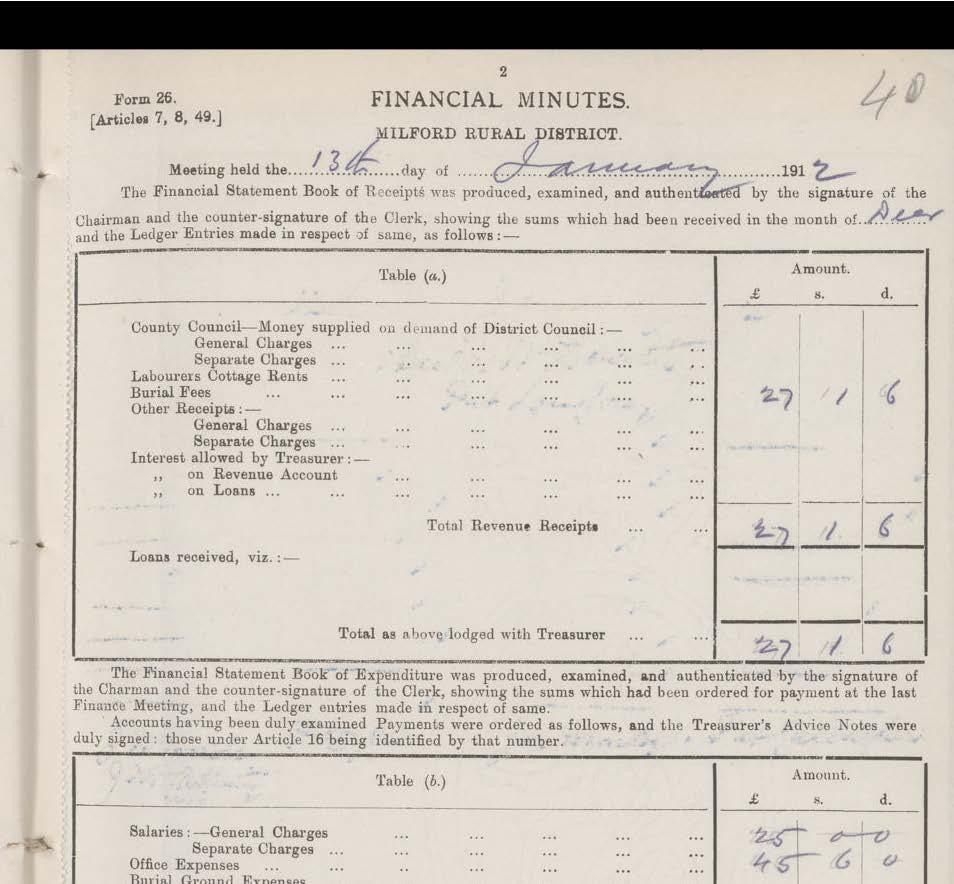 2
40
Form 26.
FINANCIAL MINUTES.
[Articles 7, 8, 49.]
MILFORD RURAL DISTRICT.
Meeting held the 13th day of January 1912
The Financial Statement Book of Receipts was produced, examined, and authenticated by the signature of the
Chairman and the counter-signature of the Clerk, showing the sums which had been received in the month of Decr
and the Ledger Entries made in respect of same, as follows:—
Table (a.) Amount.
£ s. d.
County Council—Money supplied on demand of District Council:—
General Charges ... ... ... ... ... ...
Separate Charges ... ... ... ... ... ...
Labourers Cottage Rents ... ... ... ... ... ...
Burial Fees ... ... ... ... ... ... 27 11 6
Other Receipts:—
General Charges ... ... ... ... ... ...
Separate Charges ... ... ... ... ... ...
Interest allowed by Treasurer:—
,, on Revenue Account ... ... ... ... ...
,, on Loans ... ... ... ... ... ... ...
Total Revenue Receipts ... ... 27 11 6
Loans received, viz.:—
Total as above lodged with Treasurer ... ... 27 11 6
The Financial Statement Book of Expenditure was produced, examined, and authenticated by the signature of
the Charman and the counter-signature of the Clerk, showing the sums which had been ordered for payment at the last
Finance Meeting, and the Ledger entries made in respect of same.
Accounts having been duly examined Payments were ordered as follows, and the Treasurer's Advice Notes were
duly signed: those under Article 16 being identified by that number.
Table (b.) Amount.
£ s. d.
Salaries:—General Charges ... ... ... ... ... 25 0 0
Separate Charges ... ... ... ... ... ...
Office Expenses ... ... ... ... ... ... 45 6 0
Burial Ground Expenses